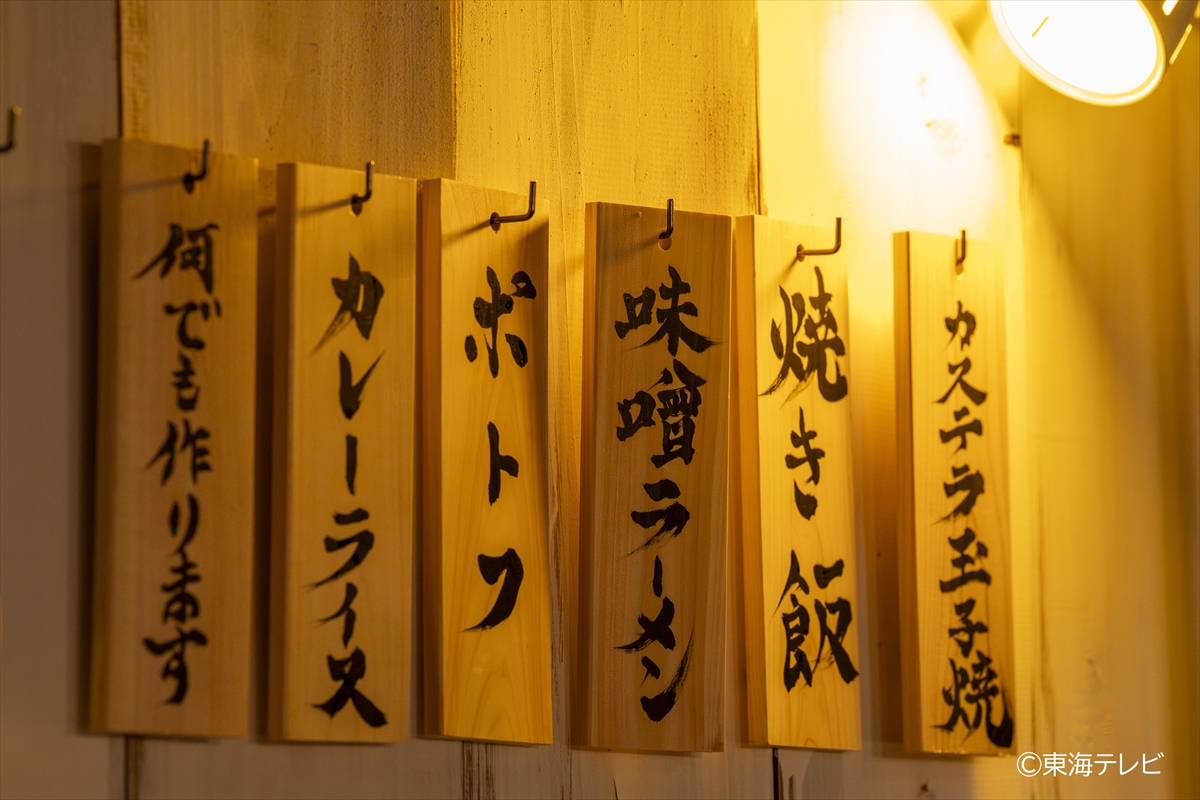 カステラ玉子焼
焼き飯
味噌ラーメン
ポトフ
カレーライス
何でも作ります
©東海テレビ